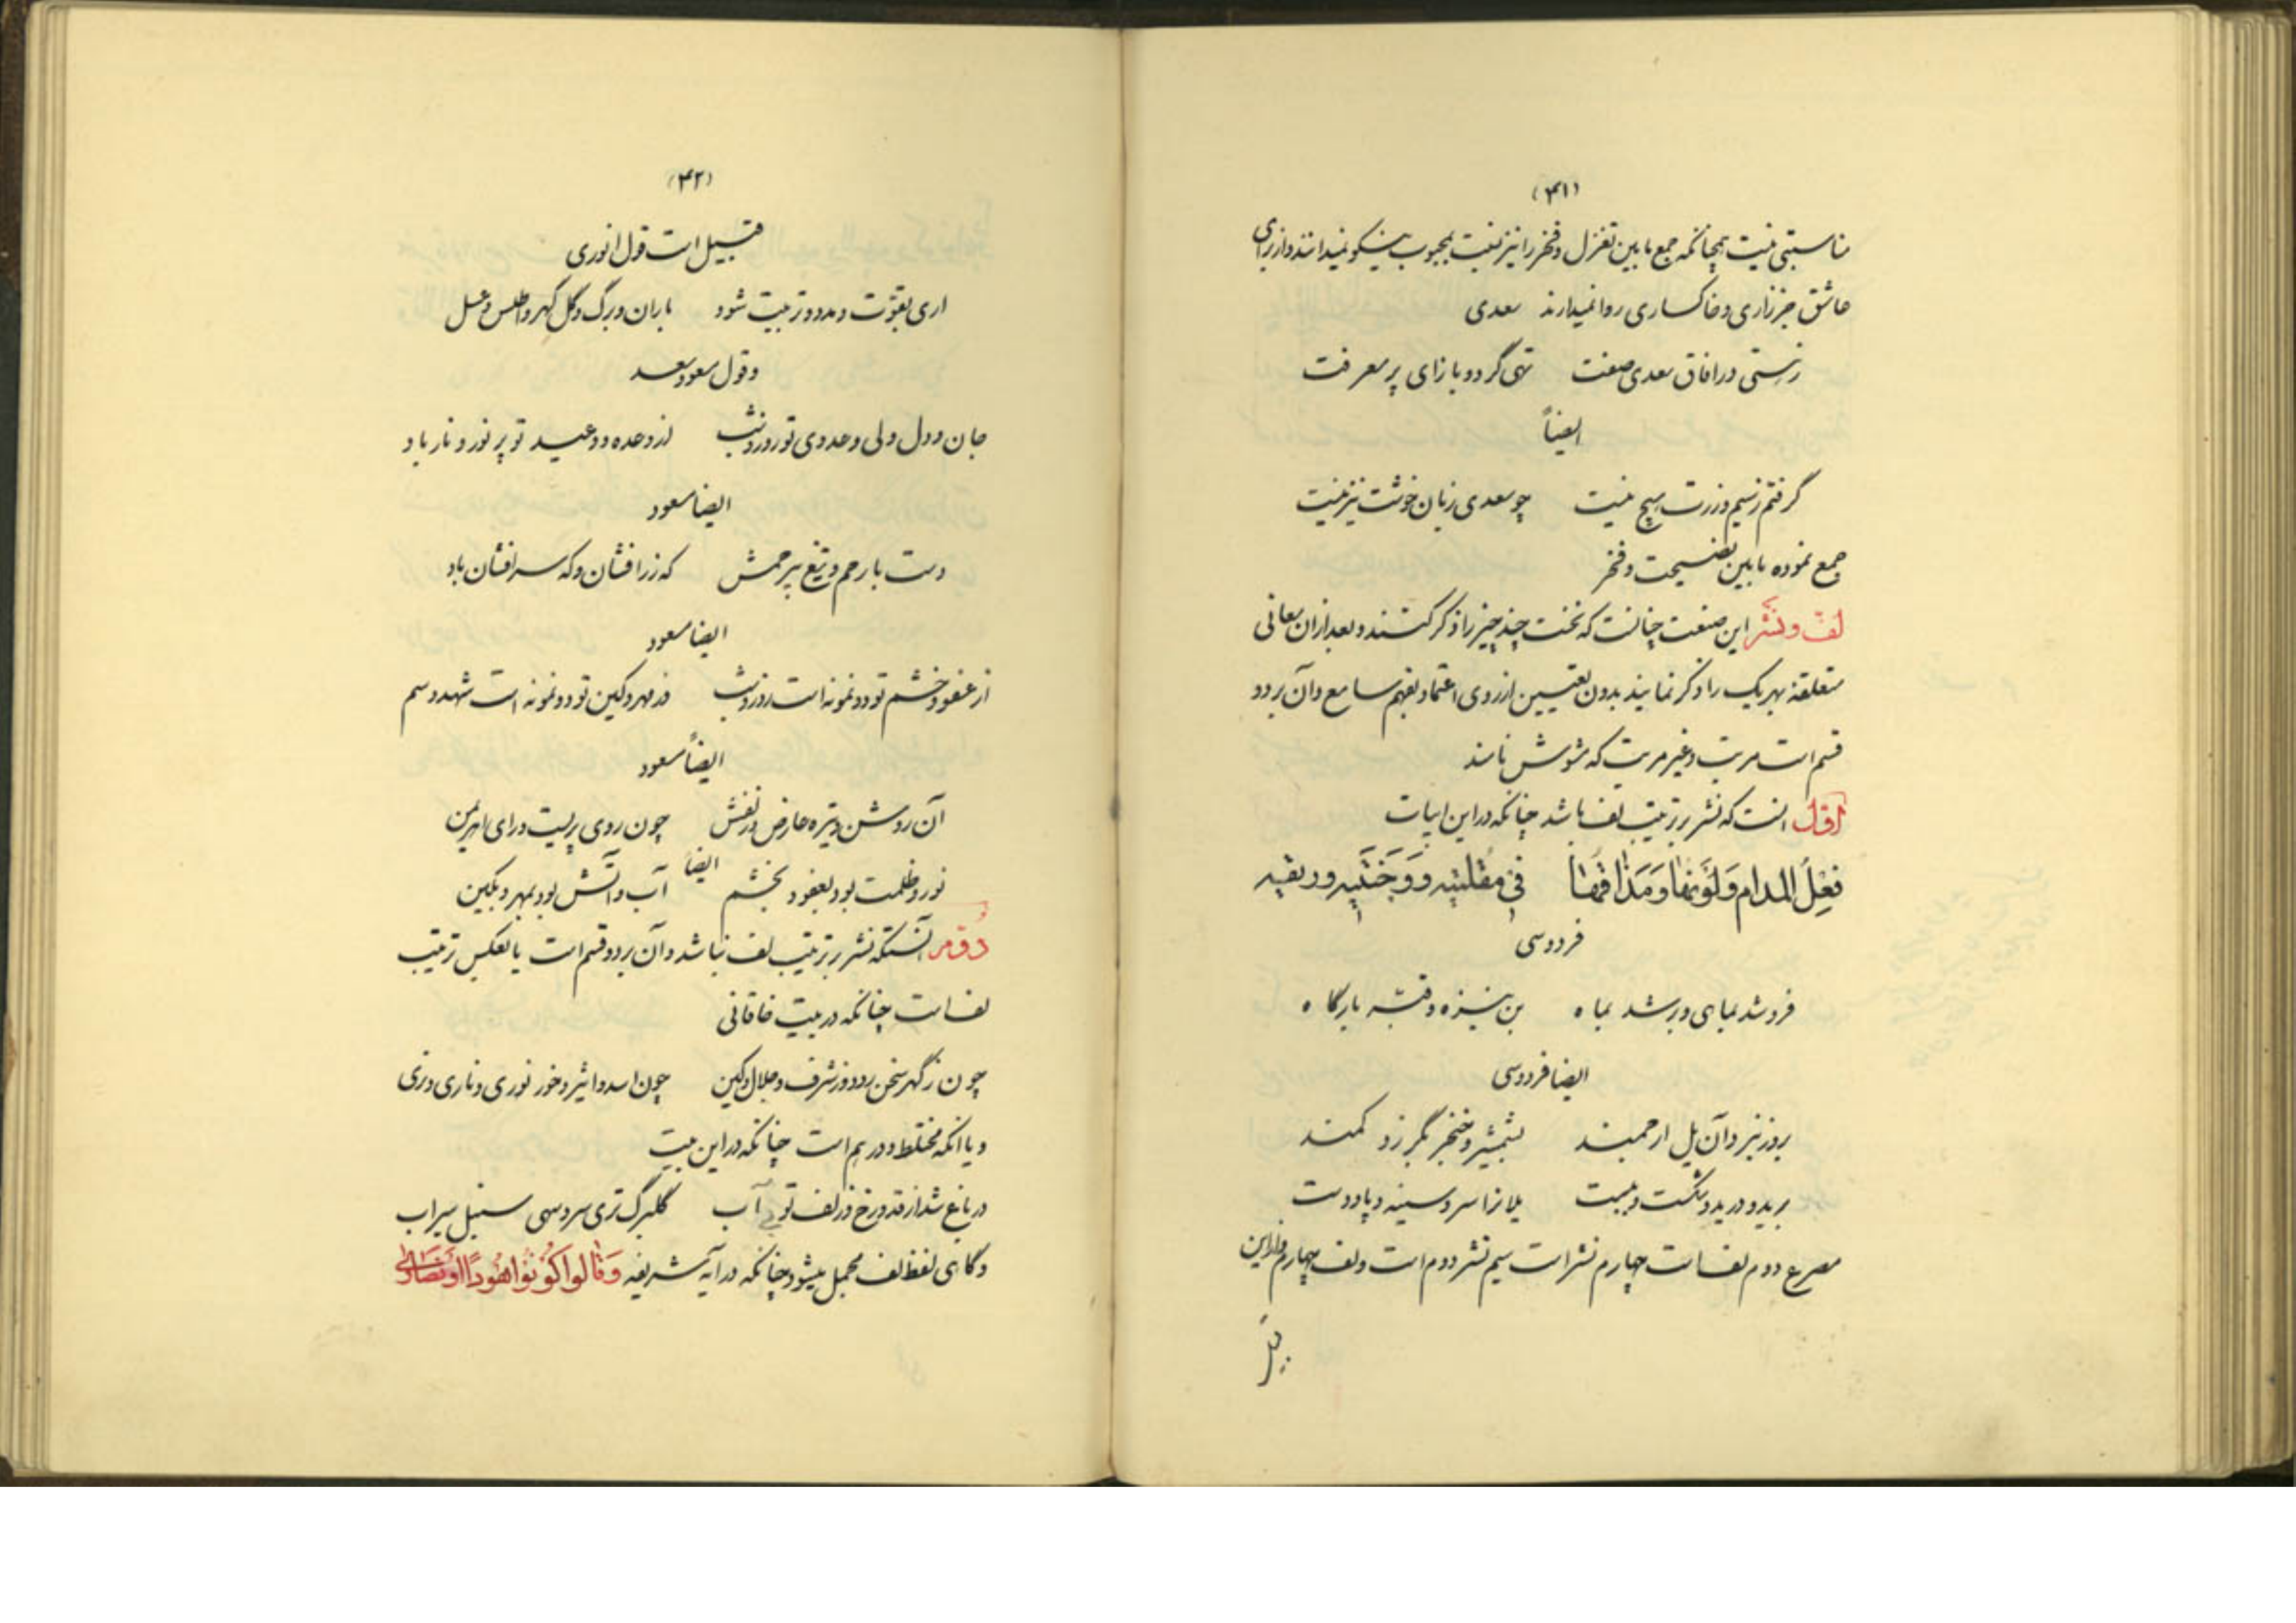 (۴۱)
مناسبتی نیست همچنانکه جمع مابین تغزل و فخر را نیز نسبت بمحبوب نیکو نمیدانند و از برای
عاشق جز زاری و خاکساری روا نمیدارند سعدی
زهستی در افاق سعدی صفت تهی گرد و بازای پر معرفت
ایضاً
گرفتم ز سیم و زرت هیچ نیست چو سعدی زبان خوشت نیز نیست
جمع نموده مابین نصیحت و فخر
لف و نشر این صنعت چنانست که نخست چند چیز را ذکر کنند و بعد از ان معانی
متعلقهٔ بهر یک را ذکر نمایند بدون تعیین از روی اعتماد بفهم سامع و آن بر دو
قسم است مرتب و غیر مرتب که مشوش نامند
اوّل انست که نشر بر ترتیب لف باشد چنانکه در این ابیات
فِعْلُ المدام وَلَوْنُها وَمَذاقُها في مُقلتیه وَوَجْنَتَیه وریقه
فردوسی
فرو شد بماهی و بر شد بماه بن نیزه و قبّه بارگاه
ایضا فردوسی
بروز نبرد آن یل ارجمند بشمشیر و خنجر بگرز و کمند
برید و درید و شکست و ببست یلانرا سر و سینه و پا و دست
مصرع دوم لف است چهارم نشر است سیم نشر دوم است و لف چهارم و از این
قبیل
(۴۲)
قبیل است قول انوری
اری بقوّت و مدد و تربیت شود باران و برگ و گل گهر و اطلس و عسل
و قول مسعود سعد
جان و دل ولی و عدوی تو روز و شب از وعده و وعید تو پر نور و نار باد
ایضا مسعود
دست با رحم و تیغ بیرحمش که زر افشان و که سر افشان باد
ایضا مسعود
از عفو و خشم تو دو نمونه است روز و شب وز مهر و کین تو دو نمونه است شهد و سم
ایضاً مسعود
آن روشن و تیره عارض و زلفش چون روی پریست و رای اهریمن
ایضا
نور و ظلمت بود بعفو و بخشم آب و آتش بود بمهر و بکین
دوّم آنستکه نشر بر ترتیب لف نباشد و آن بر دو قسم است یا بعکس ترتیب
لف است چنانکه در بیت خاقانی
چون ز گهر سخن رود وز شرف و جلال و کین چون اسد و اثیر و خور نوری و ناری و نری
و یا انکه مختلط و درهم است چنانکه در این بیت
در باغ شد از قد و رخ و زلف تو بی آب گلبرگ تری سرو سهی سنبل سیراب
و گاهی لفظ لف مجمل میشود چنانکه در آیه شریفه وَقالوا کُونُوا هُودًا اَوْ نَصَارٰی